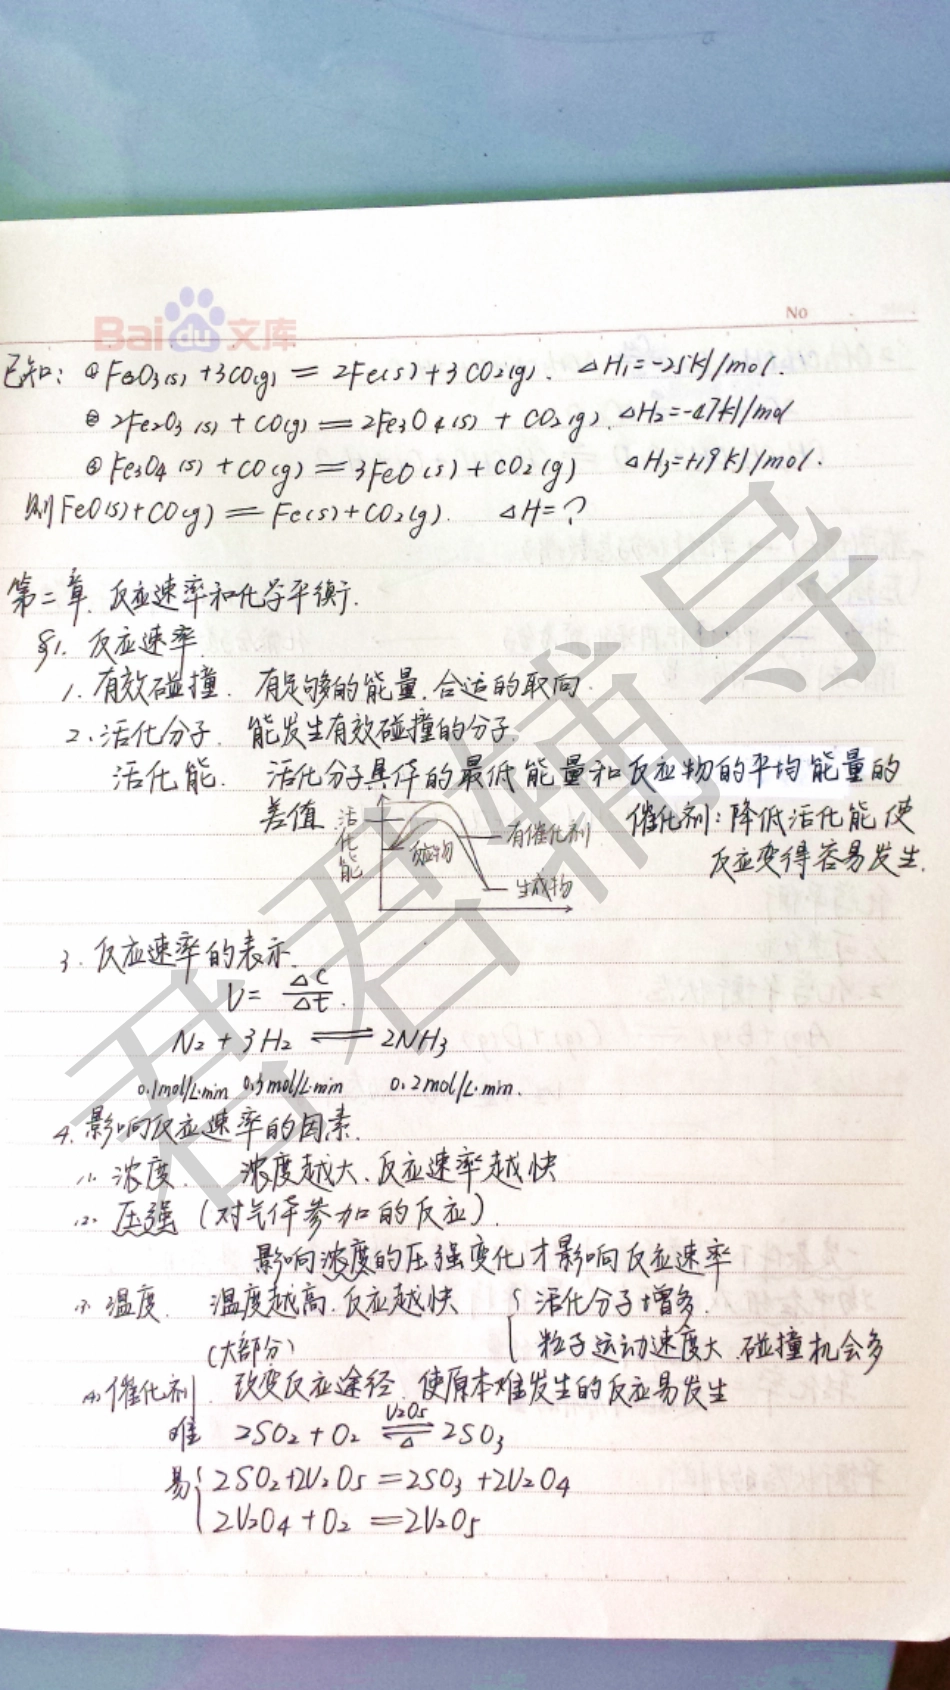 No
Bai du 文库
已知: ① FeO3(s) + 3CO(g) = 2Fe(s) + 3CO2(g). △H1=-25kJ/mol.
② 2Fe2O3(s) + CO(g) = 2Fe3O4(s) + CO2(g). △H2=-47kJ/mol
③ Fe3O4(s) + CO(g) = 3FeO(s) + CO2(g) △H3=+19kJ/mol.
则 FeO(s) + CO(g) = Fe(s) + CO2(g). △H=?
第二章. 反应速率和化学平衡.
§1. 反应速率.
1. 有效碰撞. 有足够的能量. 合适的取向.
2. 活化分子. 能发生有效碰撞的分子.
活化能. 活化分子具体的最低能量和反应物的平均能量的
差值 活化能 反应物 有催化剂 生成物
催化剂: 降低活化能使
反应变得容易发生.
3. 反应速率的表示.
V= △C/△t.
N2 + 3H2 ⇌ 2NH3
0.1mol/L·min 0.3mol/L·min 0.2mol/L·min.
4. 影响反应速率的因素.
(1). 浓度. 浓度越大. 反应速率越快
(2). 压强 (对气体参加的反应).
影响浓度的压强变化才影响反应速率
(3). 温度. 温度越高. 反应越快 { 活化分子增多.
(大部分) 粒子运动速度大. 碰撞机会多
(4). 催化剂. 改变反应途径. 使原本难发生的反应易发生
难 2SO2 + O2 ⇌ 2SO3 V2O5 △
易 { 2SO2 + 2V2O5 = 2SO3 + 2V2O4
2V2O4 + O2 = 2V2O5
君君辅导